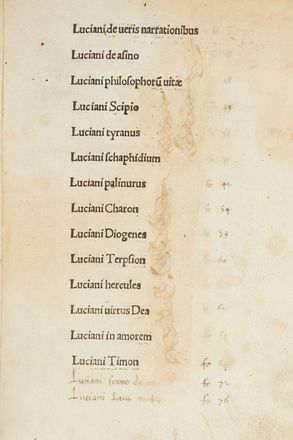 Luciani de ueris narrationibus
Luciani de asino
Luciani philosophorū uitæ
Luciani Scipio
Luciani tyranus
Luciani schaphidium
Luciani palinurus
Luciani Charon fo 54
Luciani Diogenes fo 59
Luciani Terpsion fo 60
Luciani hercules
Luciani uirtus Dea
Luciani in amorem
Luciani Timon fo
Luciani sermo de fo 72
Luciani Laus musce fo 76